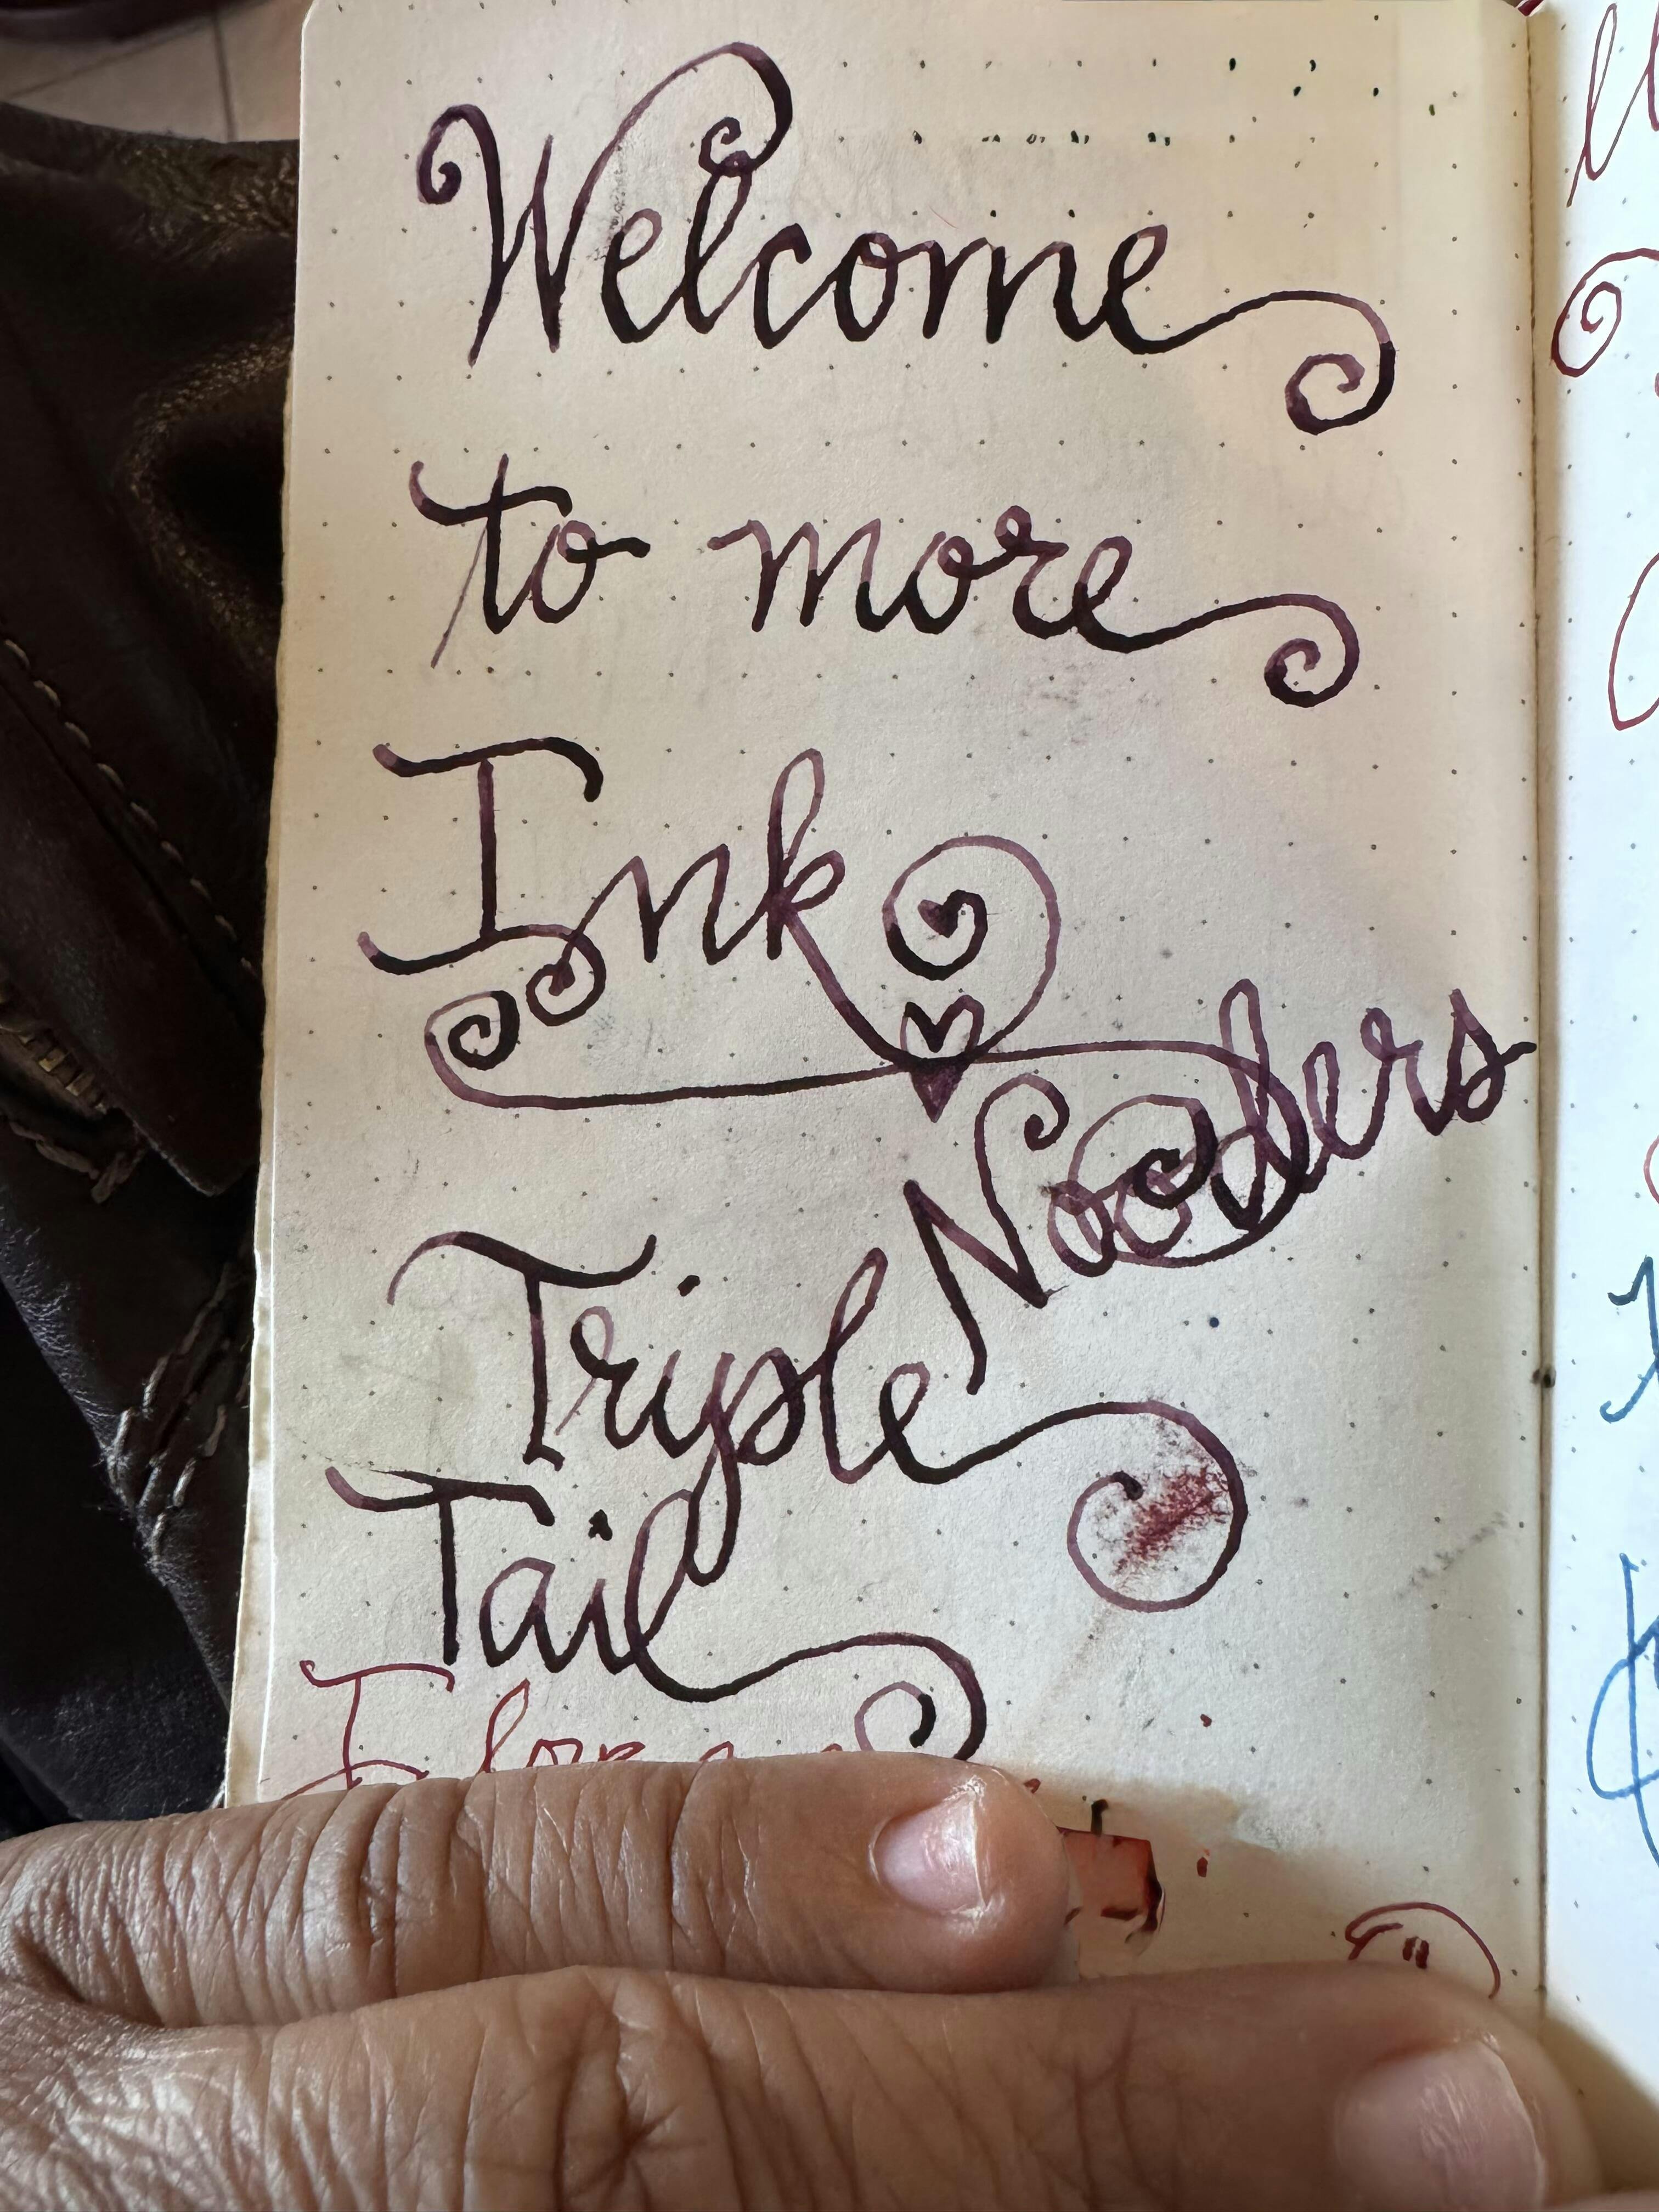 Welcome
to more
Ink
Nooders
Triple
Tail
I love